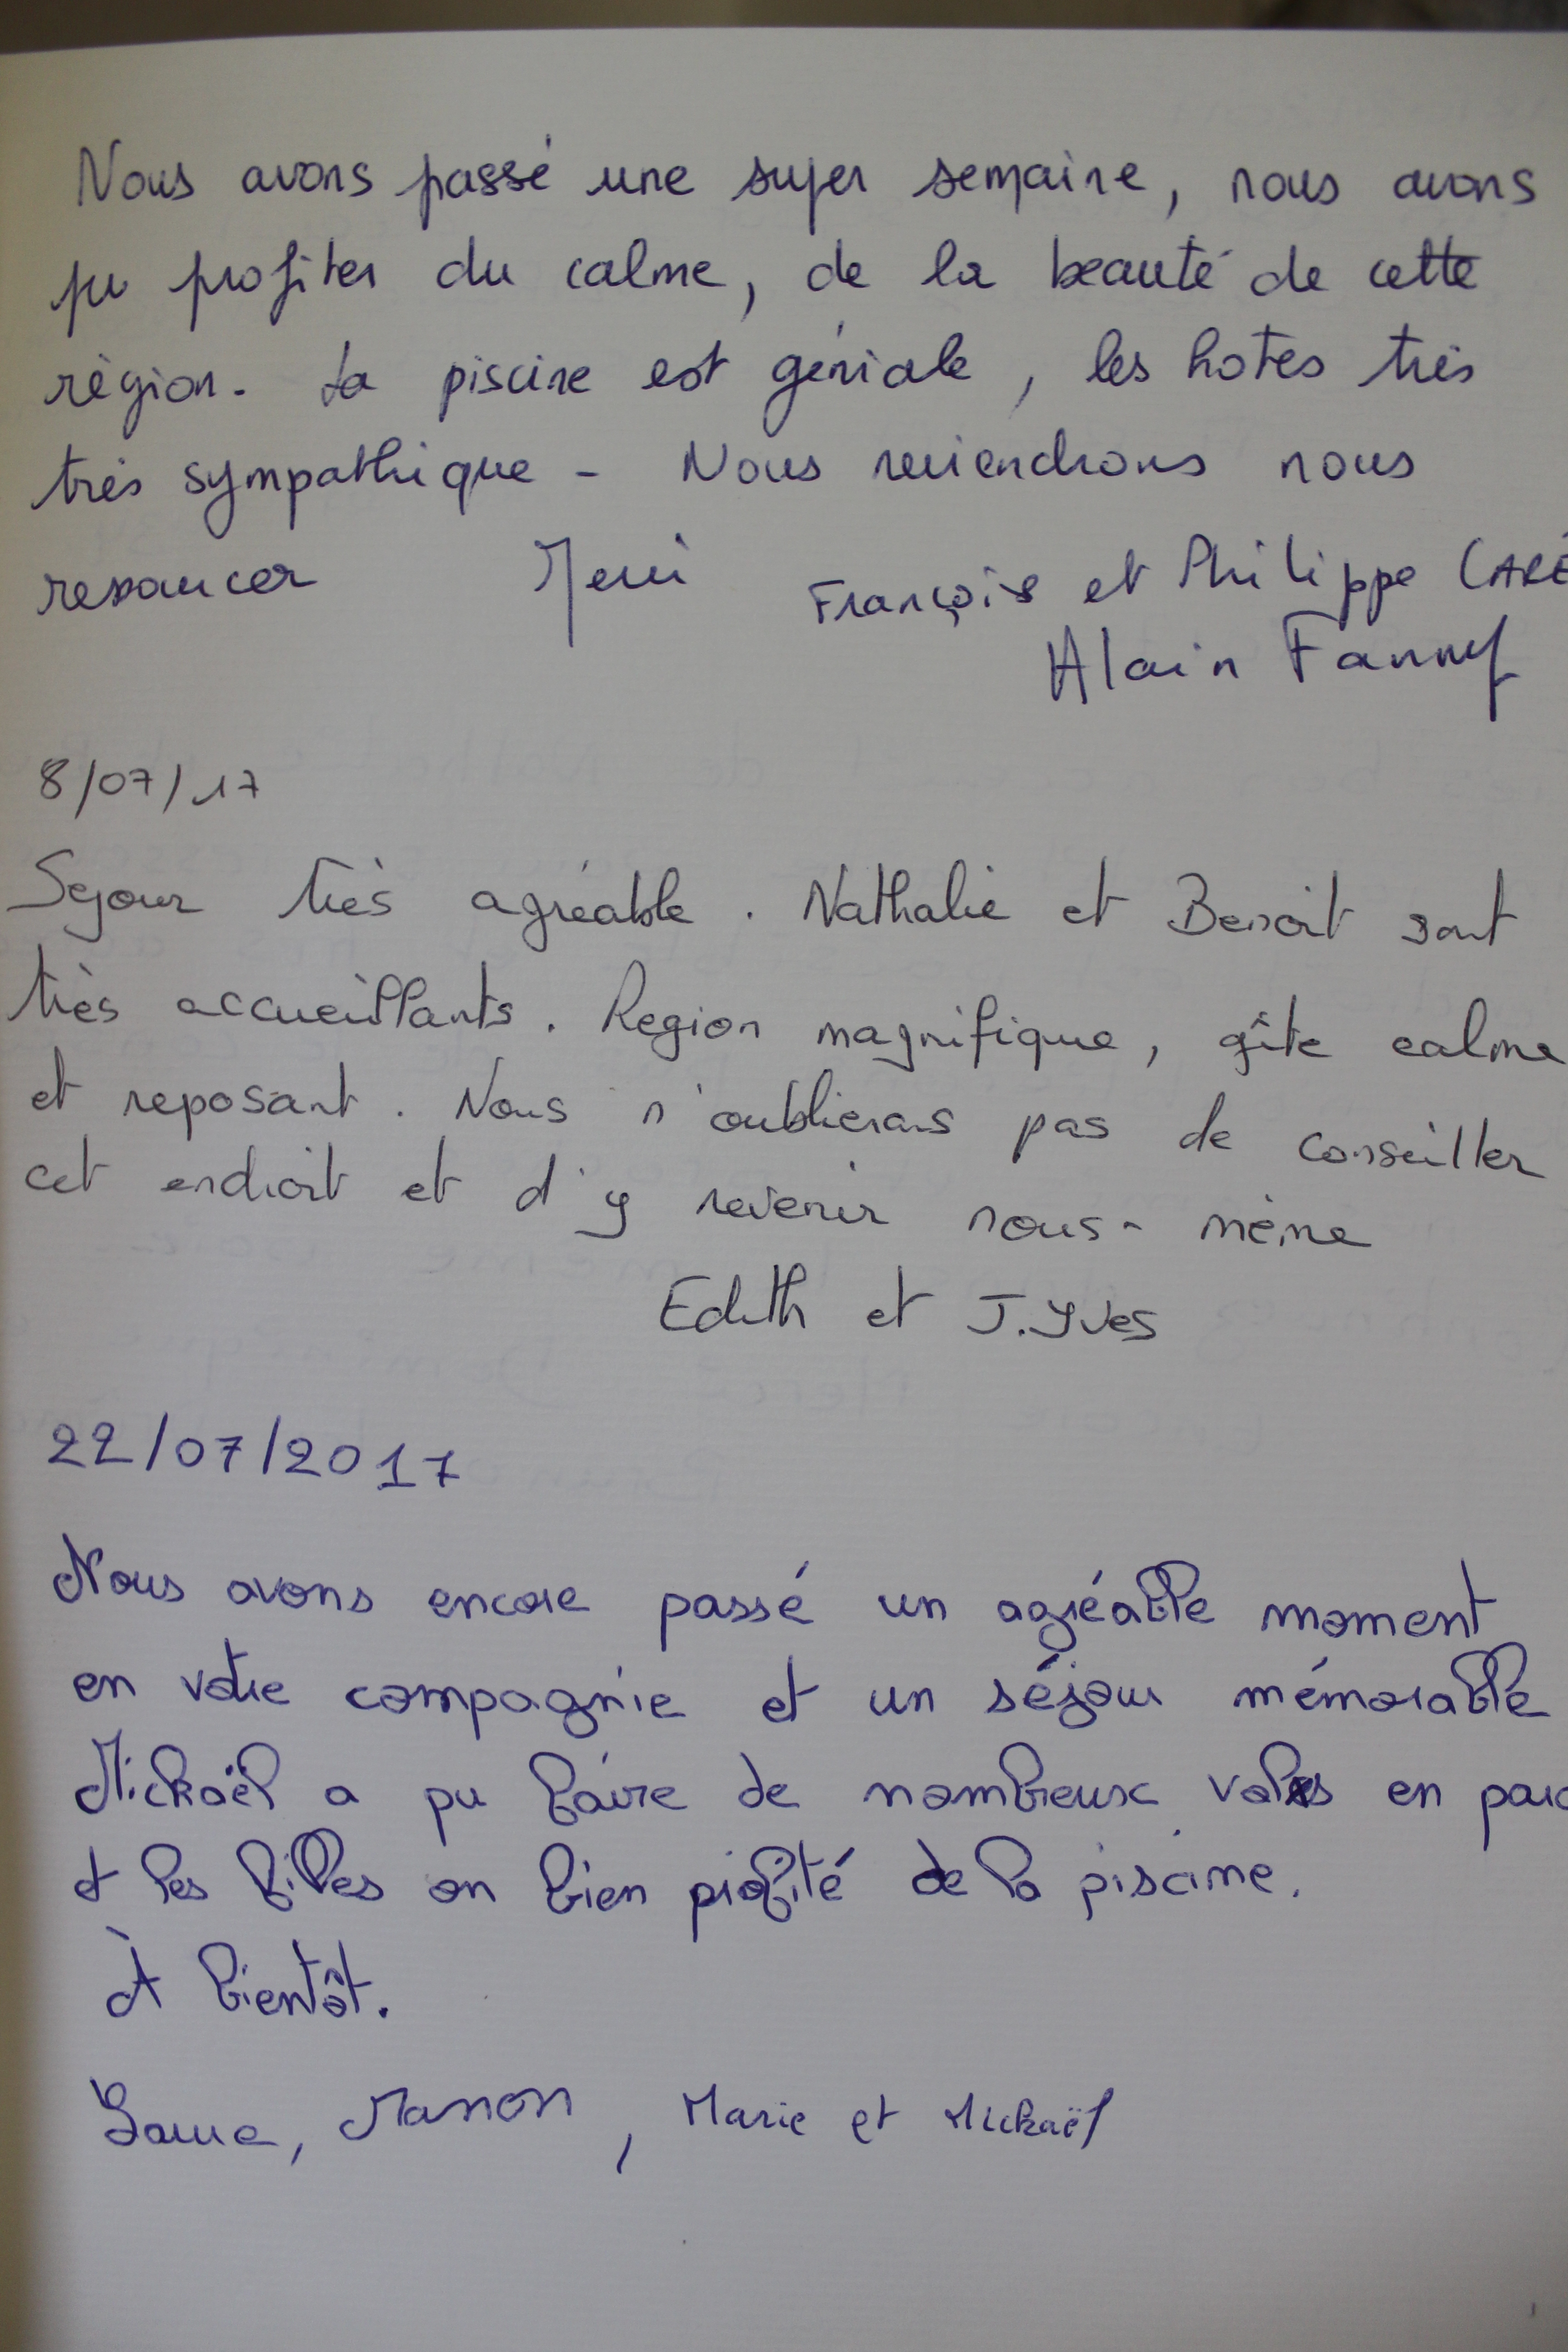 Nous avons passé une super semaine, nous avons
pu profiter du calme, de la beauté de cette
règion. La piscine est géniale, les hotes très
très sympathique - Nous reviendrons nous
ressoucer Merci François et Philippe CARÉ
Alain Fanny
8/07/17
Sejour très agréable. Nathalie et Benoit sont
très accueillants. Region magnifique, gîte calme
et reposant. Nous n'oublierons pas de conseiller
cet endroit et d'y revenir nous-même
Edith et J.Yves
22/07/2017
Nous avons encore passé un agréable moment
en votre compagnie et un séjour mémorable
Mickaël a pu faire de nombreux vols en para
et les filles on bien profité de la piscine.
À bientôt.
Manon, Marie et Mickaël